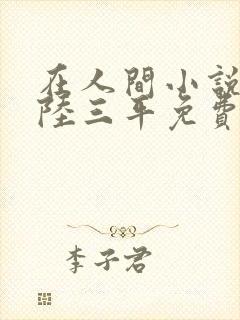 在人間小說
陸三年免費
李子君